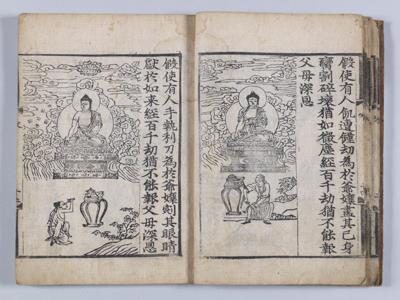 假使有人飢遭饉劫為於爺孃盡其己身
臠割碎壞猶如微塵經百千劫猶不能報
父母深恩
假使有人手執利刀為於爺孃剜其眼睛
獻於如来經百千劫猶不能報父母深恩